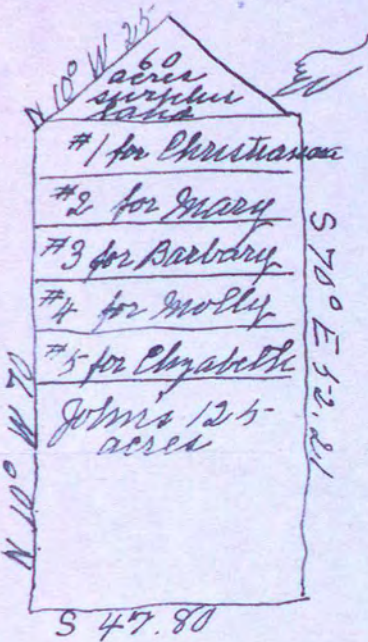 N 10° W 25
60
acres
surplus
land
#1 for Christianaa
#2 for Mary
#3 for Barbary
#4 for Molly
#5 for Elyzabeth
John's 125
acres
N 10° W 70
S 70° E 52.21
S 47.80